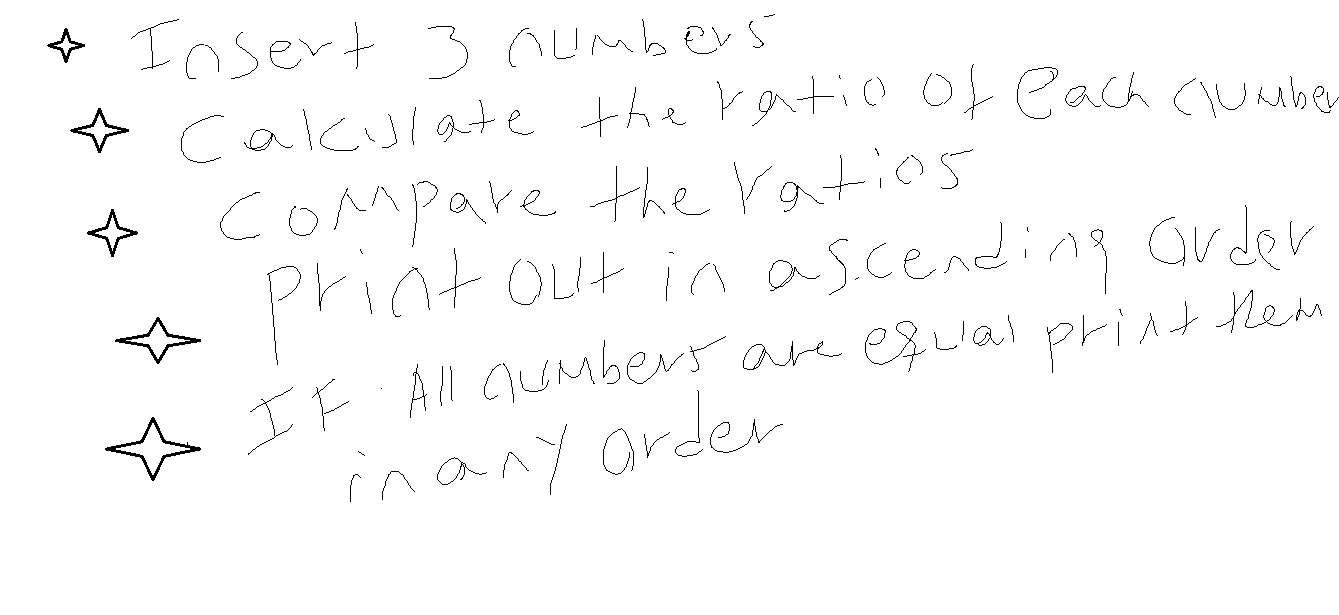 Insert 3 numbers
Calculate the ratio of each number
Compare the ratios
print out in ascending order
IF All numbers are equal print them
in any order